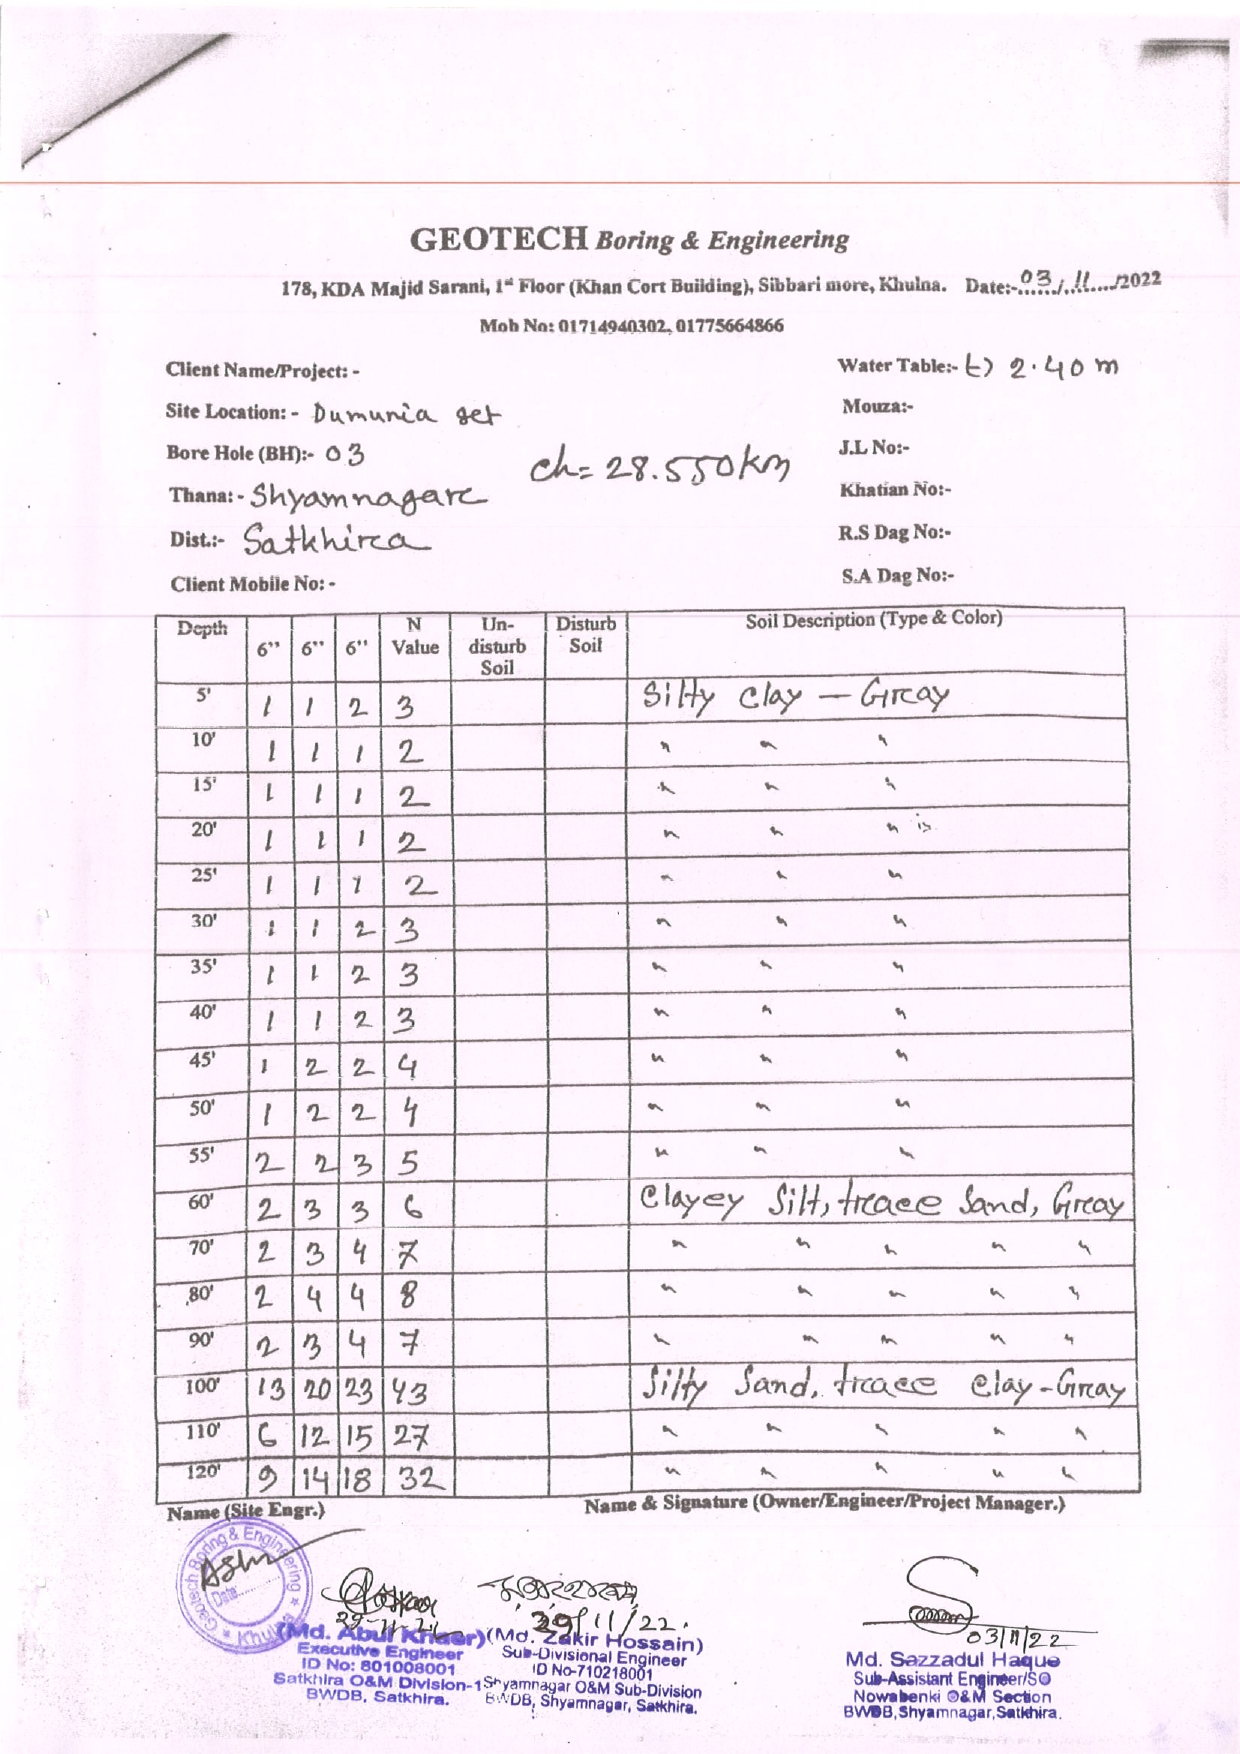 GEOTECH Boring & Engineering
178, KDA Majid Sarani, 1st Floor (Khan Cort Building), Sibbari more, Khulna. Date:-03/11/2022
Mob No: 01714940302, 01775664866
Client Name/Project: -
Water Table:- (-) 2.40 m
Site Location: - Dumuria
Mouza:-
Bore Hole (BH):- 03
ch = 28.550 km
J.L No:-
Thana: - Shyamnagar
Khatian No:-
Dist.:- Satkhira
R.S Dag No:-
Client Mobile No: -
S.A Dag No:-
Depth 6'' 6'' 6'' N Value Un-disturb Soil Disturb Soil Soil Description (Type & Color)
5' 1 1 2 3 Silty Clay - Gray
10' 1 1 1 2 " " "
15' 1 1 1 2 " " "
20' 1 1 1 2 " " "
25' 1 1 1 2 " " "
30' 1 1 2 3 " " "
35' 1 1 2 3 " " "
40' 1 1 2 3 " " "
45' 1 2 2 4 " " "
50' 1 2 2 4 " " "
55' 2 2 3 5 " " "
60' 2 3 3 6 Clayey Silt, trace Sand, Gray
70' 2 3 4 7 " " " " "
80' 2 4 4 8 " " " " "
90' 2 3 4 7 " " " " "
100' 13 20 23 43 Silty Sand, trace Clay - Gray
110' 6 12 15 27 " " " " "
120' 9 14 18 32 " " " " "
Name (Site Engr.)
Name & Signature (Owner/Engineer/Project Manager.)
Geotech Boring & Engineering
Date:
Khulna
29/11/22.
(Md. Abul Khaer)
Executive Engineer
ID No: 801008001
Satkhira O&M Division-1
BWDB, Satkhira.
(Md. Zakir Hossain)
Sub-Divisional Engineer
ID No-710218001
Shyamnagar O&M Sub-Division
BWDB, Shyamnagar, Satkhira.
03/11/22
Md. Sazzadul Haque
Sub-Assistant Engineer/SO
Nowabenki O&M Section
BWDB,Shyamnagar,Satkhira.